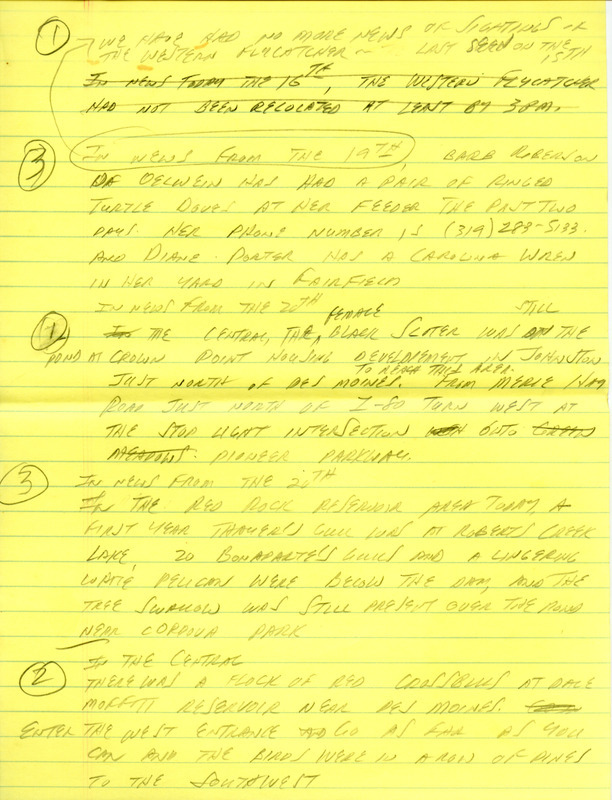 ① WE HAVE HAD NO MORE NEWS OF SIGHTINGS OF
THE WESTERN FLYCATCHER — LAST SEEN ON THE
15TH
IN NEWS TODAY THE 16TH, THE WESTERN FLYCATCHER
HAD NOT BEEN RELOCATED AT LEAST BY 3 PM.
③ IN NEWS FROM THE 19TH, BARB ROBERSON
OF OELWEIN HAS HAD A PAIR OF RINGED
TURTLE DOVES AT HER FEEDER THE PAST TWO
DAYS. HER PHONE NUMBER IS (319) 283-5133.
AND DIANE PORTER HAS A CAROLINA WREN
IN HER YARD IN FAIRFIELD
IN NEWS FROM THE 20TH
FEMALE STILL
① IN THE CENTRAL, THE BLACK SCOTER WAS ON THE
POND AT CROWN POINT HOUSING DEVELOPEMENT IN JOHNSTON
TO REACH THIS AREA.
JUST NORTH OF DES MOINES. FROM MERLE HAY
ROAD JUST NORTH OF I-80 TURN WEST AT
THE STOP LIGHT INTERSECTION ONTO GREEN
MEADOWS. PIONEER PARKWAY.
③ IN NEWS FROM THE 20TH
IN THE RED ROCK RESERVOIR AREA TODAY, A
FIRST YEAR THAYER'S GULL WAS AT ROBERTS CREEK
LAKE, 20 BONAPARTE'S GULLS AND A LINGERING
WHITE PELICAN WERE BELOW THE DAM, AND THE
TREE SWALLOW WAS STILL PRESENT OVER THE POND
NEAR CORDOVA PARK
② IN THE CENTRAL
THERE WAS A FLOCK OF RED CROSSBILLS AT DALE
MOFFITT RESERVOIR NEAR DES MOINES.
ENTER THE WEST ENTRANCE GO AS FAR AS YOU
CAN AND THE BIRDS WERE IN A ROW OF PINES
TO THE SOUTHWEST